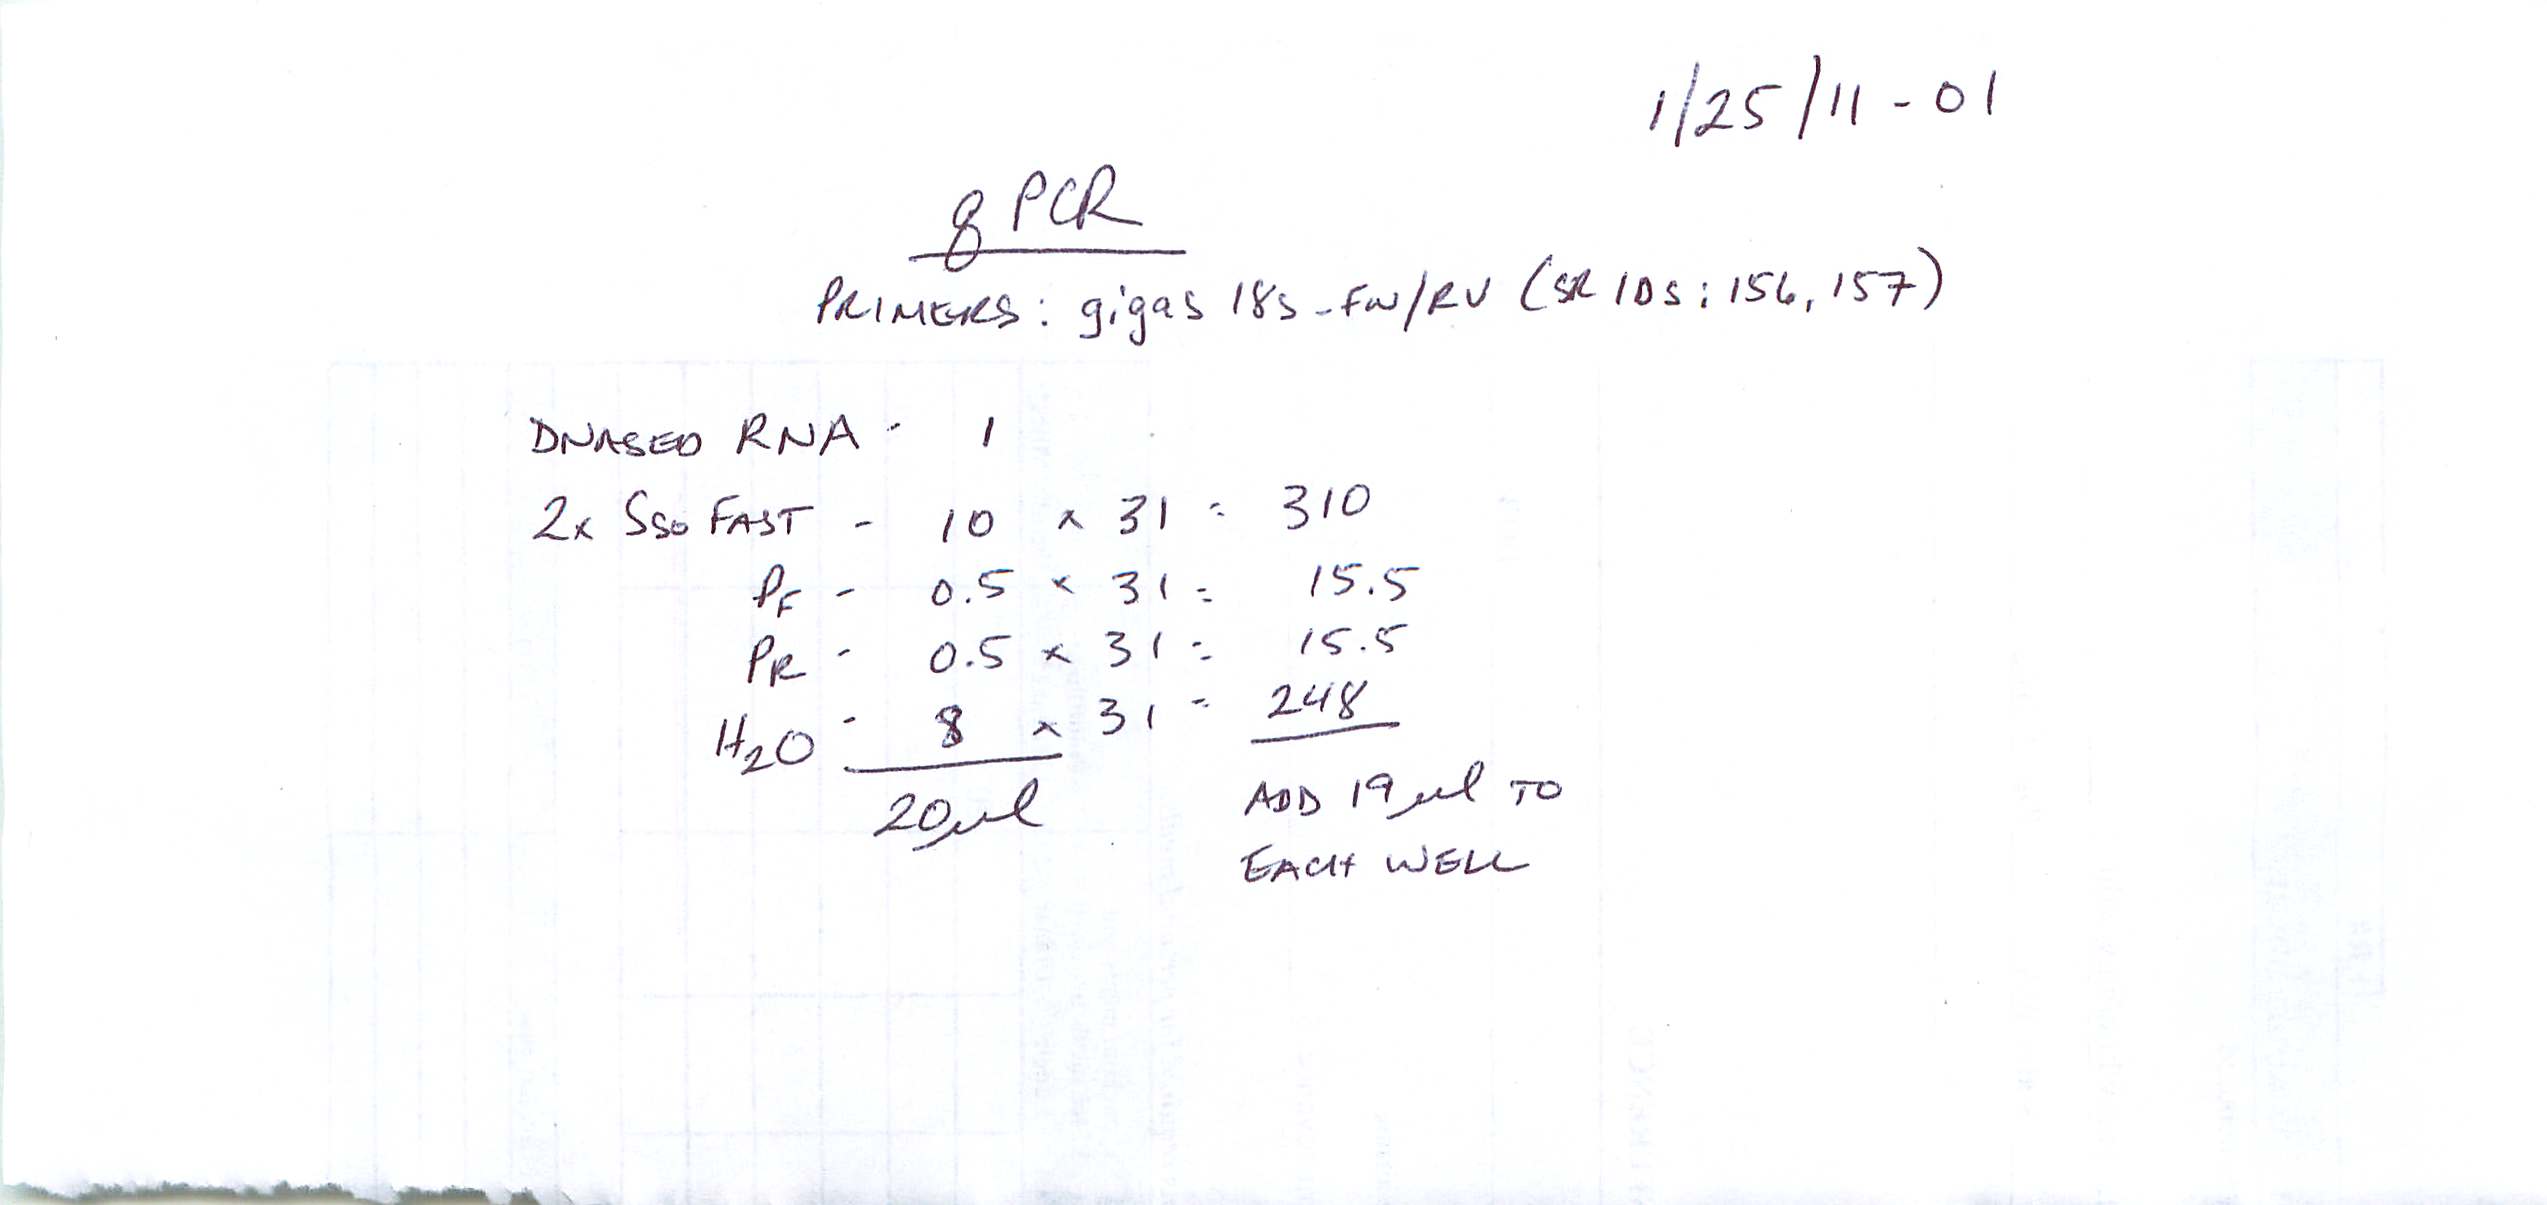 1/25/11-01
qPCR
PRIMERS: gigas 18s-FW/RV (SR IDS: 156, 157)
DNASED RNA - 1
2x Sso FAST - 10 x 31 = 310
PF - 0.5 x 31 = 15.5
PR - 0.5 x 31 = 15.5
H2O - 8 x 31 = 248
20µl
ADD 19µl TO
EACH WELL